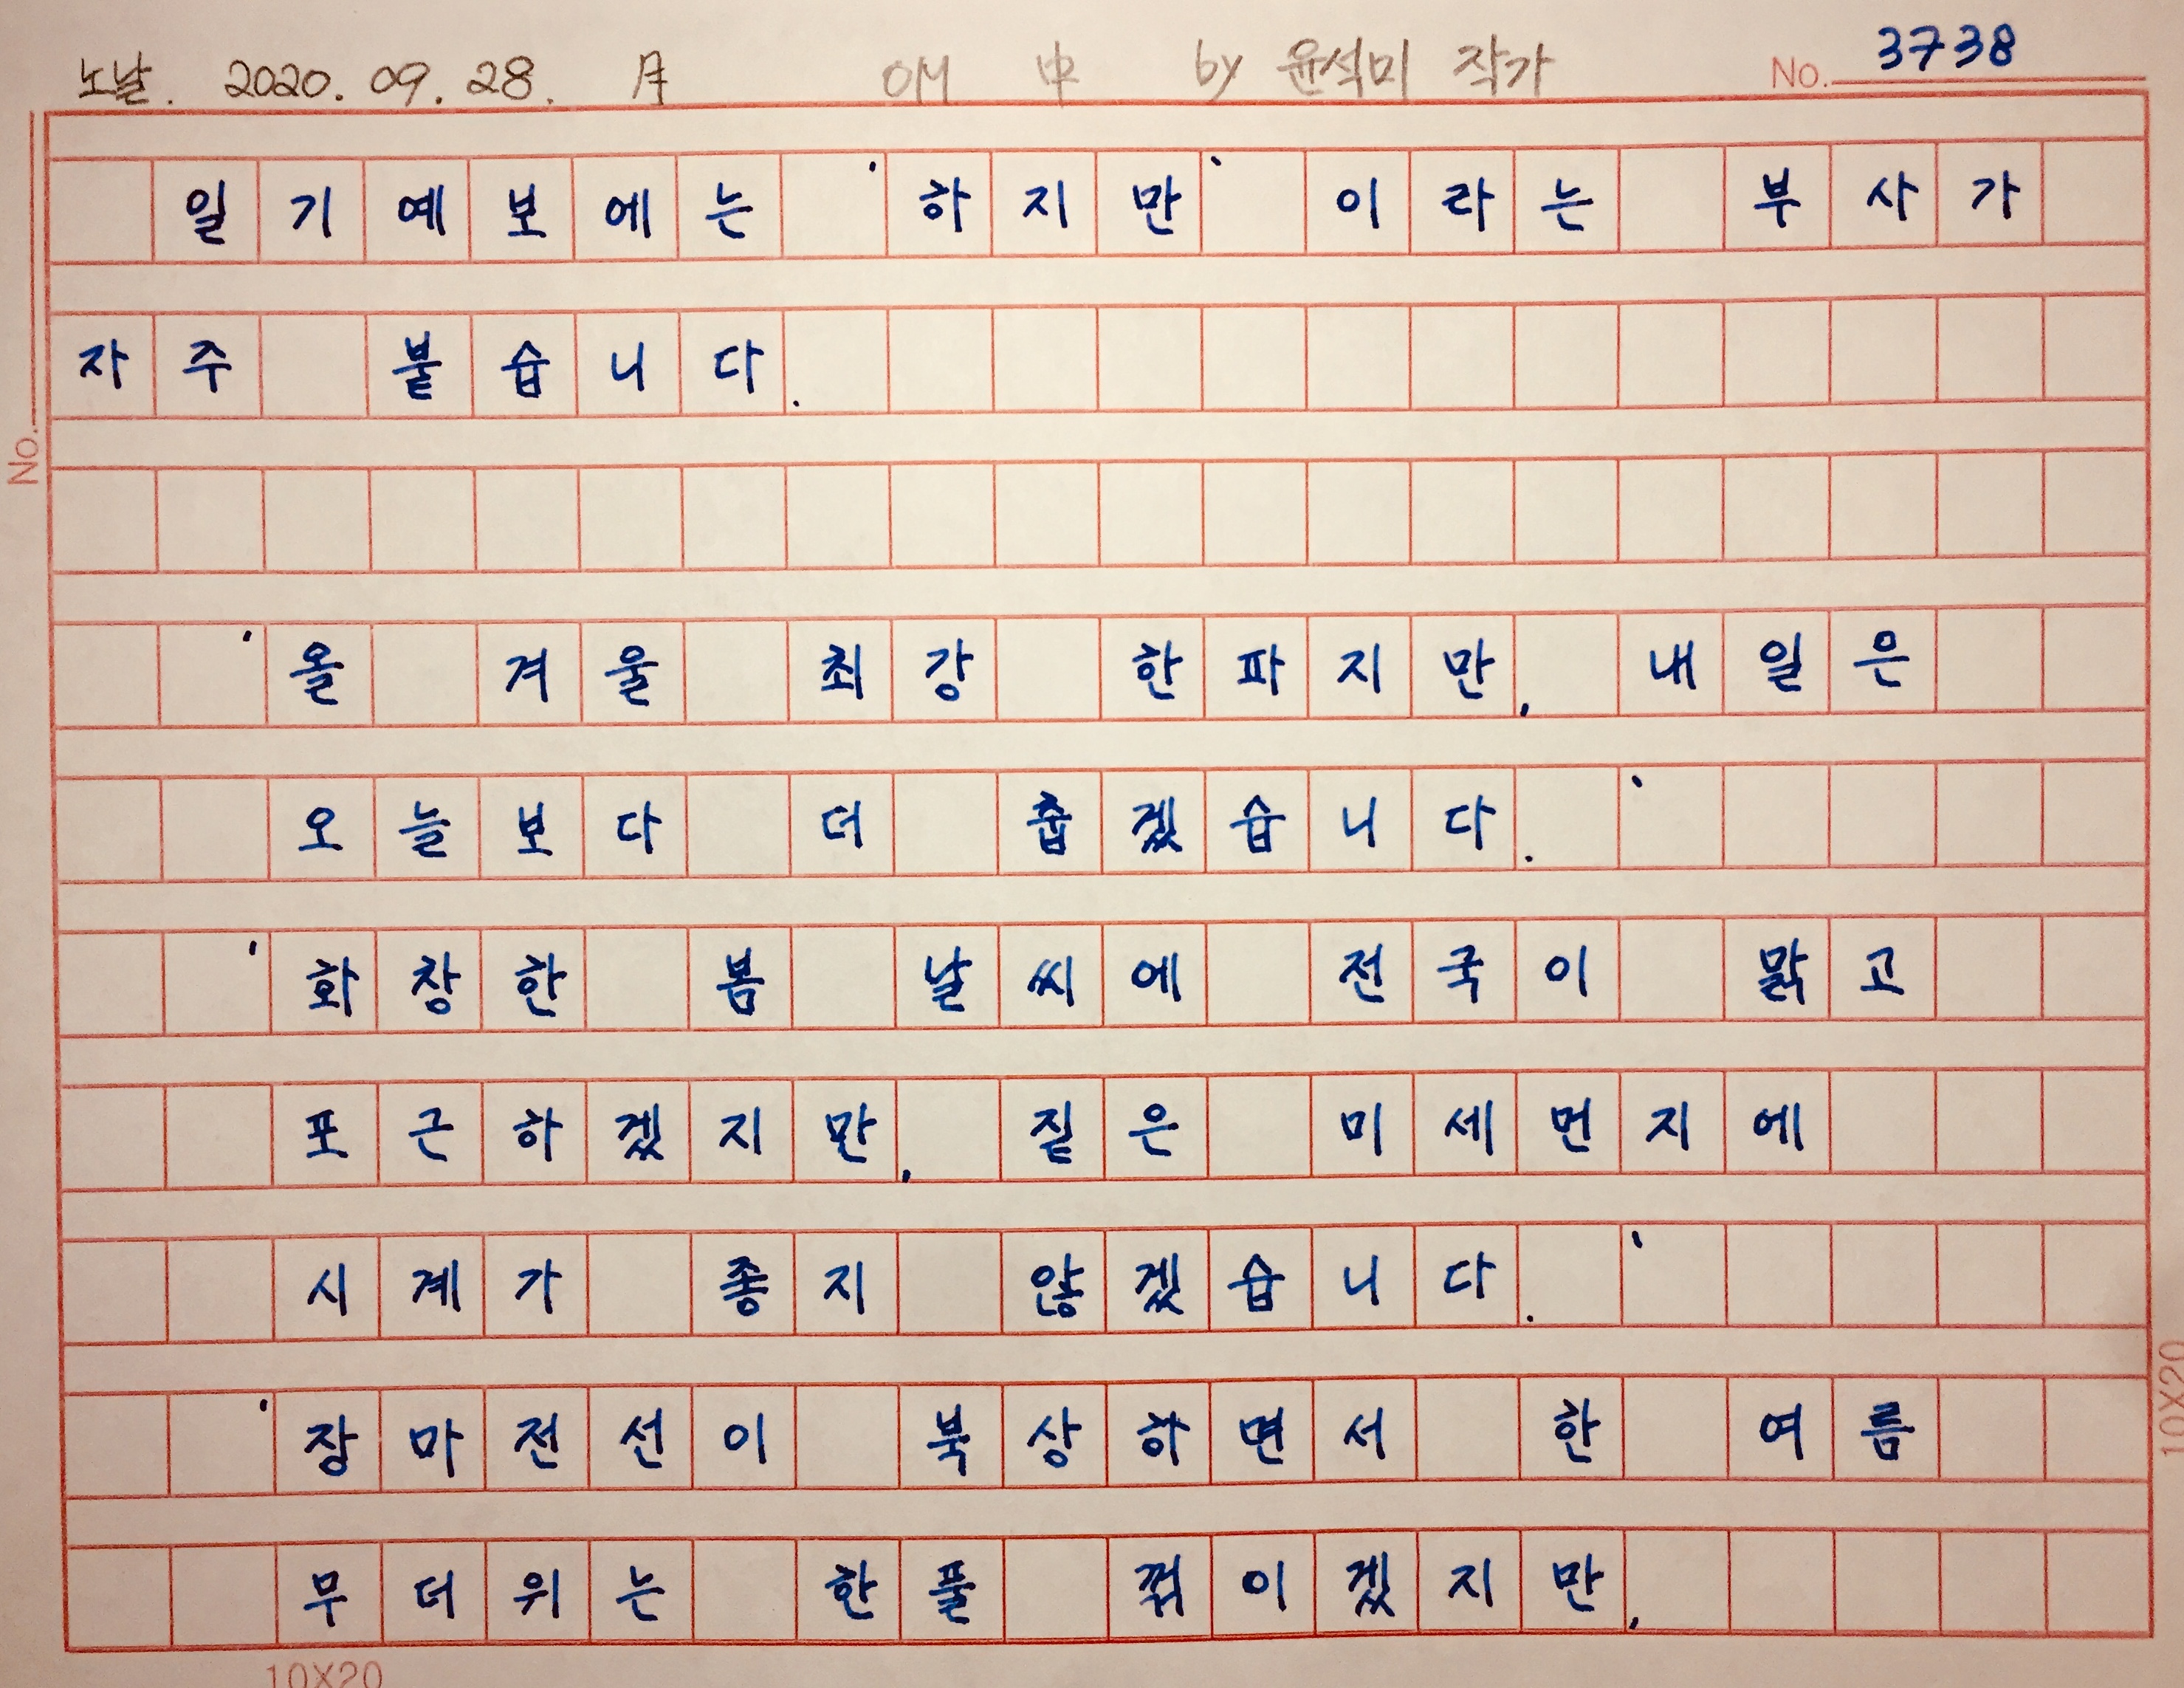 노날. 2020. 09. 28. 月 OM 中 by 윤석미 작가 No. 3738
일기예보에는 '하지만' 이라는 부사가
자주 붙습니다.
No.
'올 겨울 최강 한파지만, 내일은
오늘보다 더 춥겠습니다.'
'화창한 봄 날씨에 전국이 맑고
포근하겠지만, 짙은 미세먼지에
시계가 좋지 않겠습니다.'
'장마전선이 북상하면서 한 여름
무더위는 한풀 꺾이겠지만,
10X20
10X20